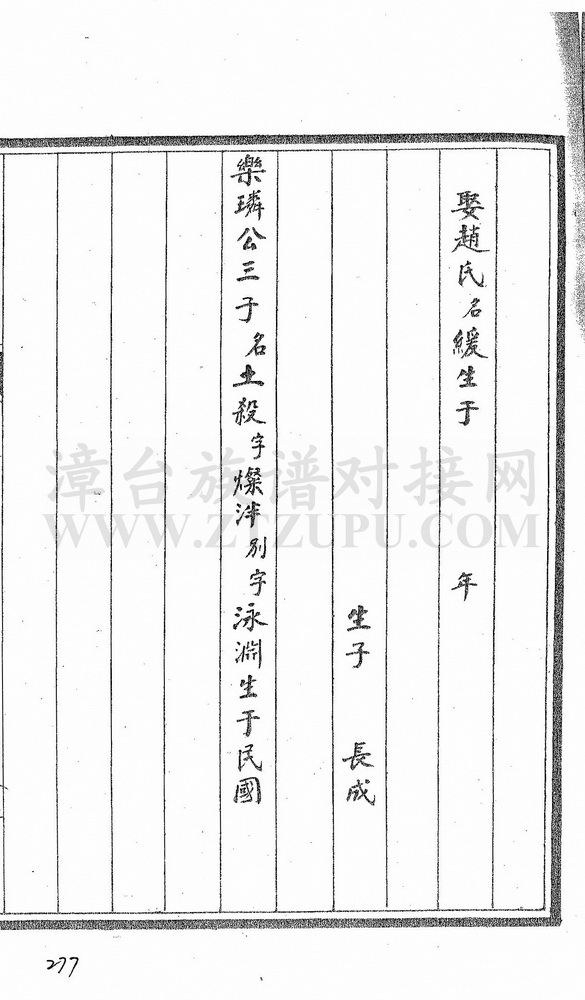 娶趙氏名緩生于 年
生子 長成
樂璘公三子名土殺字燦泮別字泳淵生于民國
漳台族谱对接网
WWW.ZTZUPU.COM
277